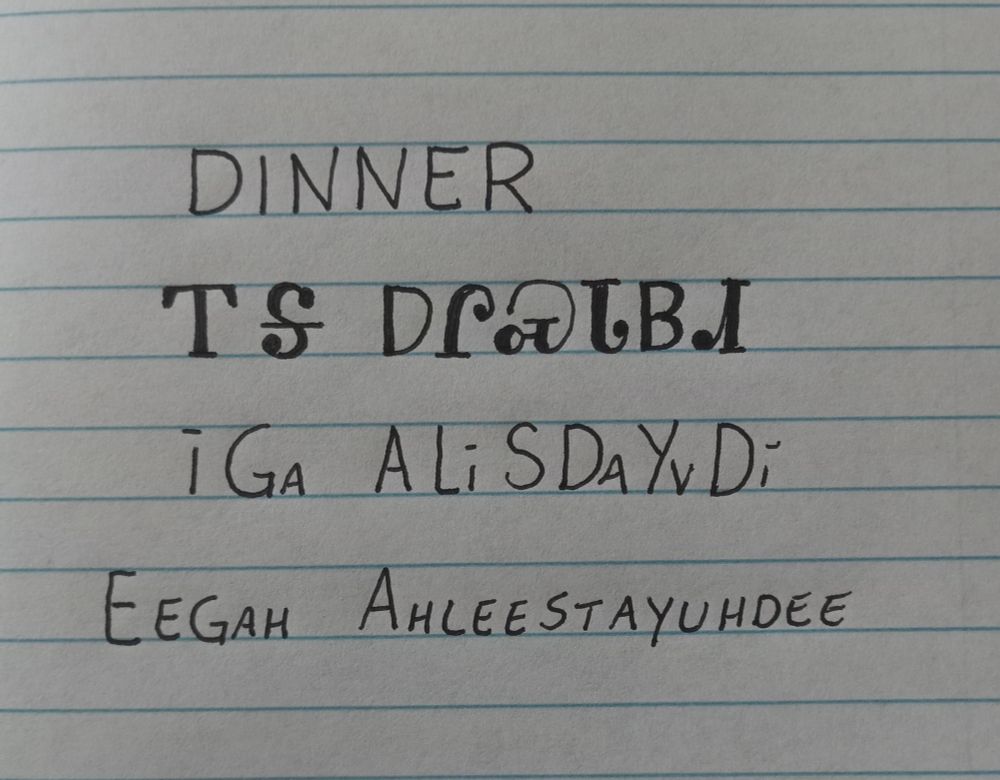 DINNER
ᎢᎦ ᎠᎵᏍᏓᏴᏗ
iGA ALiSDAYvDi
EEGAH AHLEESTAYUHDEE